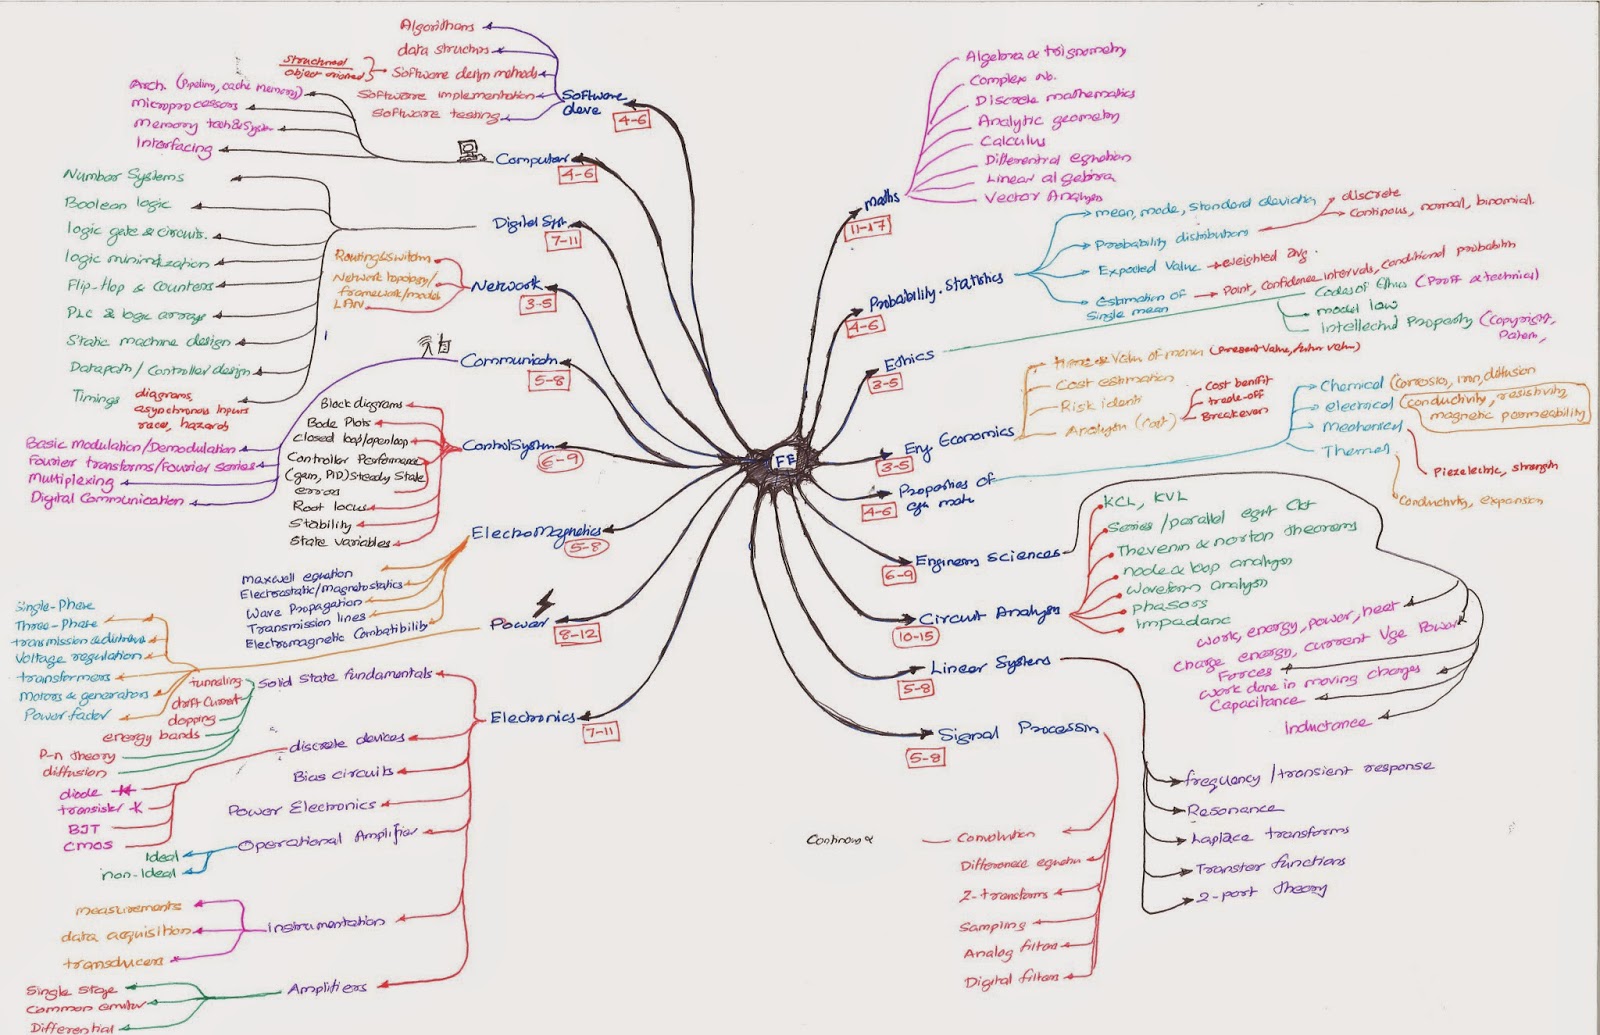 FE
maths
11-17
Algebra & trignometry
Complex no.
Discrete mathematics
Analytic geometry
Calculus
Differential eqnation
Linear algebra
Vector Analysis
Probability. Statistics
4-6
mean, mode, standard deviation
Probability distributions
discrete
continous, normal, binomial
Expected Value
weighted avg.
Estimation of
Single mean
Point, Confidence intervals, conditional probability
Ethics
3-5
Codes of Ethics (Proff & technical)
model law
Intellectual Property (Copyright,
Patern,
Eng Economics
3-5
Time & Value of money (present value, futur value)
Cost estimation
Risk identi
Analysis (cost)
Cost benifit
trade-off
Breakeven
Properties of
4-6
Chemical (corrosion, ion, diffusion
electrical (conductivity, resistivity,
magnetic permeability)
Mechanical
Thermal
Piezelectric, strength
Conductivity, expansion
Engineers Sciences
6-9
work, energy, power, heat
Charge energy, current Vge Power
Forces
work done in moving charges
Capacitance
Inductance
Circuit Analysis
10-15
KCL, KVL
Series/parallel eqvt Ckt
Thevenin & norton theorems
node & loop analysis
Waveform analysis
phasoss
Impedanc
Linear Systems
5-8
frequency/transient response
Resonance
Laplace transforms
Transfer functions
2-port theory
Signal Processin
5-8
Convolution
Difference equatn
Z-transforms
Sampling
Analog filters
Digital filters
Software
deve
4-6
Algorithms
data structurs
Software design methods
structured
object oriented
Software implementation
Software testing
Computer
4-6
Arch. (Pipelin, cache memory)
microprocessors
Memory tech & System
Interfacing
Digital Syst
7-11
Number Systems
Boolean logic
logic gate & circuits.
logic minimization
Flip-flop & counters
PLC & logic arrays
Static machine design
Datapath/Controller design
Timings
diagrams,
asynchronous Inputs
race, hazards
Network
3-5
Routing & Switchin
Network topology/
framework/model
LAN
Communicatn
5-8
Basic modulation/Demodulation
Fourier transforms/Fourier series
Multiplexing
Digital Communication
Control System
6-9
Block diagrams
Bode Plots
closed loop/open loop
Controller Performance
(gain, PID) Steady State
errors
Root locus
Stability
State variables
Electro Magnetics
5-8
Maxwell equation
Electrostatic/magnetostatics
Wave Propagation
Transmission lines
Electromagnetic Combatibility
Power
8-12
Single-Phase
Three-Phase
Voltage regulation
transformers
Motors & generators
Power factor
Electronics
7-11
Solid State fundamentals
tunneling
drift Current
dopping
energy bands
P-n theory
diffusion
discrete devices
diode
transistor
BJT
CMOS
Bias circuits
Power Electronics
Operational Amplifier
Ideal
non-Ideal
Instrumentation
measurements
data acquisition
transducers
Amplifiers
Single stage
Common emitter
Differential